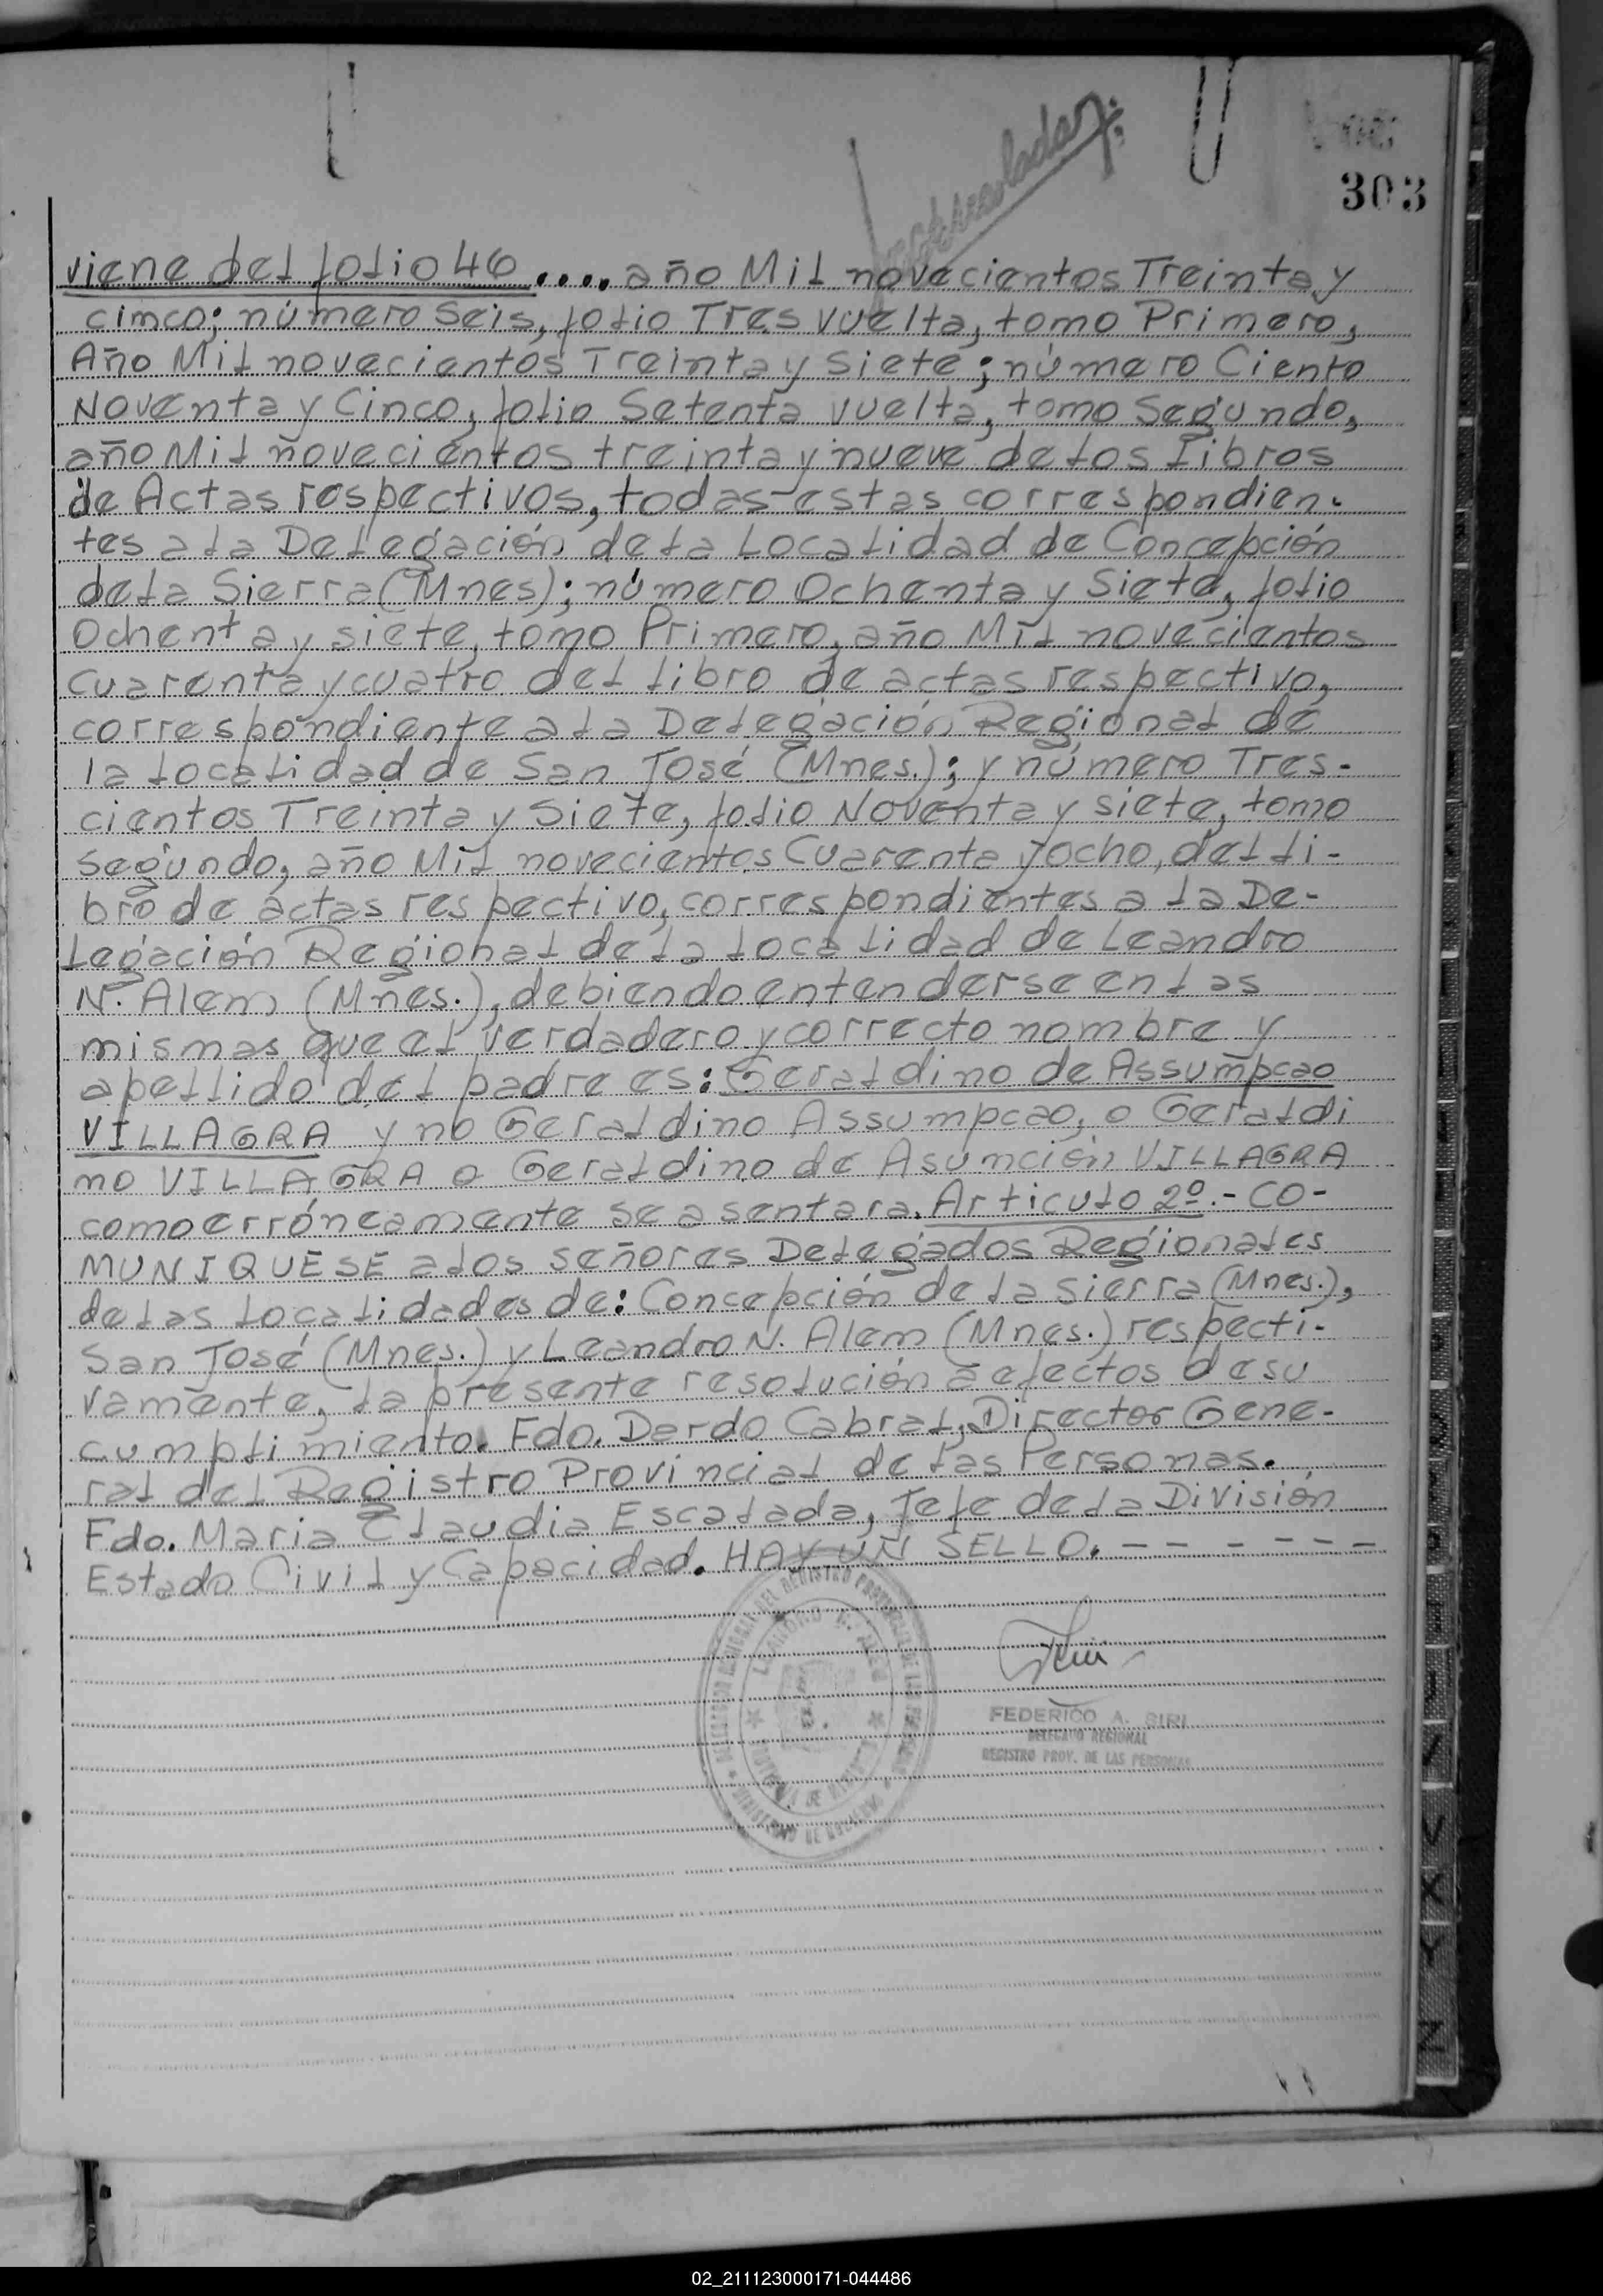 303
viene del folio 46.... año Mil novecientos Treinta y
cinco; número Seis, folio Tres vuelta, tomo Primero,
Año Mil novecientos Treinta y Siete; número Ciento
Noventa y Cinco, folio Setenta vuelta, tomo Segundo,
año Mil novecientos treinta y nueve de los Libros
de Actas respectivos, todas estas correspondien-
tes a la Delegación de la Localidad de Concepción
de la Sierra (Mnes); número Ochenta y Siete, folio
Ochenta y siete, tomo Primero, año Mil novecientos
cuarenta y cuatro del libro de actas respectivo,
correspondiente a la Delegación Regional de
la localidad de San José (Mnes.); y número Tres-
cientos Treinta y Siete, folio Noventa y siete, tomo
Segundo, año Mil novecientos Cuarenta y ocho, del li-
bro de actas respectivo, correspondientes a la De-
legación Regional de la localidad de Leandro
N. Alem (Mnes.), debiendo entenderse en las
mismas que el verdadero y correcto nombre y
apellido del padre es: Geraldino de Assumpcao
VILLAGRA y no Geraldino Assumpcao, o Geraldi
no VILLAGRA o Geraldino de Asunción VILLAGRA
como erróneamente se asentara. Articulo 2º.- CO-
MUNIQUESE a los señores Delegados Regionales
de las localidades de: Concepción de la Sierra (Mnes.),
San José (Mnes.) y Leandro N. Alem (Mnes.) respecti-
vamente, la presente resolución a efectos de su
cumplimiento. Fdo. Dardo Cabral, Director Gene-
ral del Registro Provincial de las Personas.
Fdo. Maria Claudia Escalada, Jefe de la División
Estado Civil y Capacidad. HAY UN SELLO. - - - - - - -
FEDERICO A. SIRI
DELEGADO REGIONAL
REGISTRO PROV. DE LAS PERSONAS
02_211123000171-044486